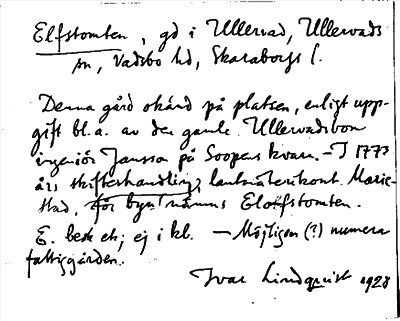 Elfstomten, gd i Ullervad, Ullervads
sn, Vadsbo hd, Skaraborgs l.
Denna gård okänd på platsen, enligt upp-
gift bl.a. av den gamle Ullervadsbon
ingeniör Jansson på Soopens kvarn. – I 1773
års skifteshandling, lantmäterikont. Marie-
stad, för byn nämns Eloofstomten.
E. besk etc; ej i kb. – Möjligen (?) numera
fattiggården.
Ivar Lindquist 1928